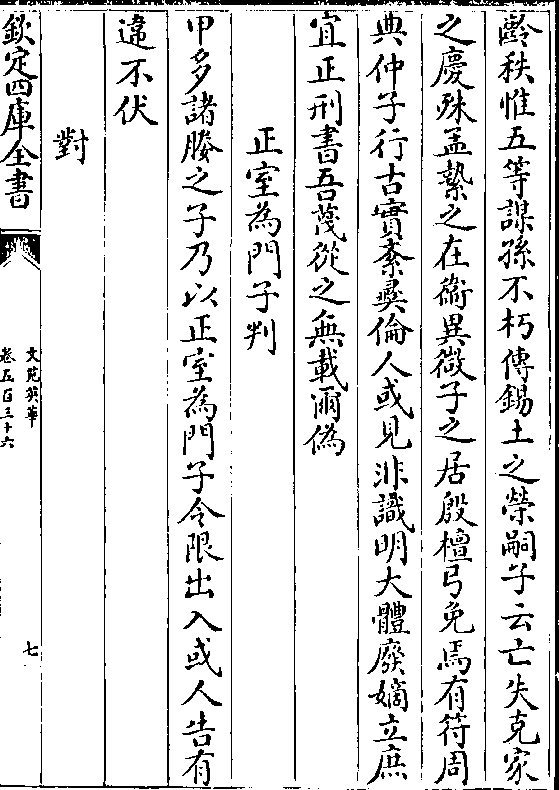 齡秩惟五等謀孫不朽傳錫土之榮嗣子云亡失克家
之慶殊孟縶之在衛異微子之居殷檀弓免焉有符周
典仲子行古實紊彞倫人或見非識明大體廢嫡立庶
宜正刑書吾蔑從之無載爾偽
正室為門子判
甲多諸媵之子乃以正室為門子令限出入或人告有
違不伏
對
欽定四庫全書
文苑英華
卷五百三十六
七